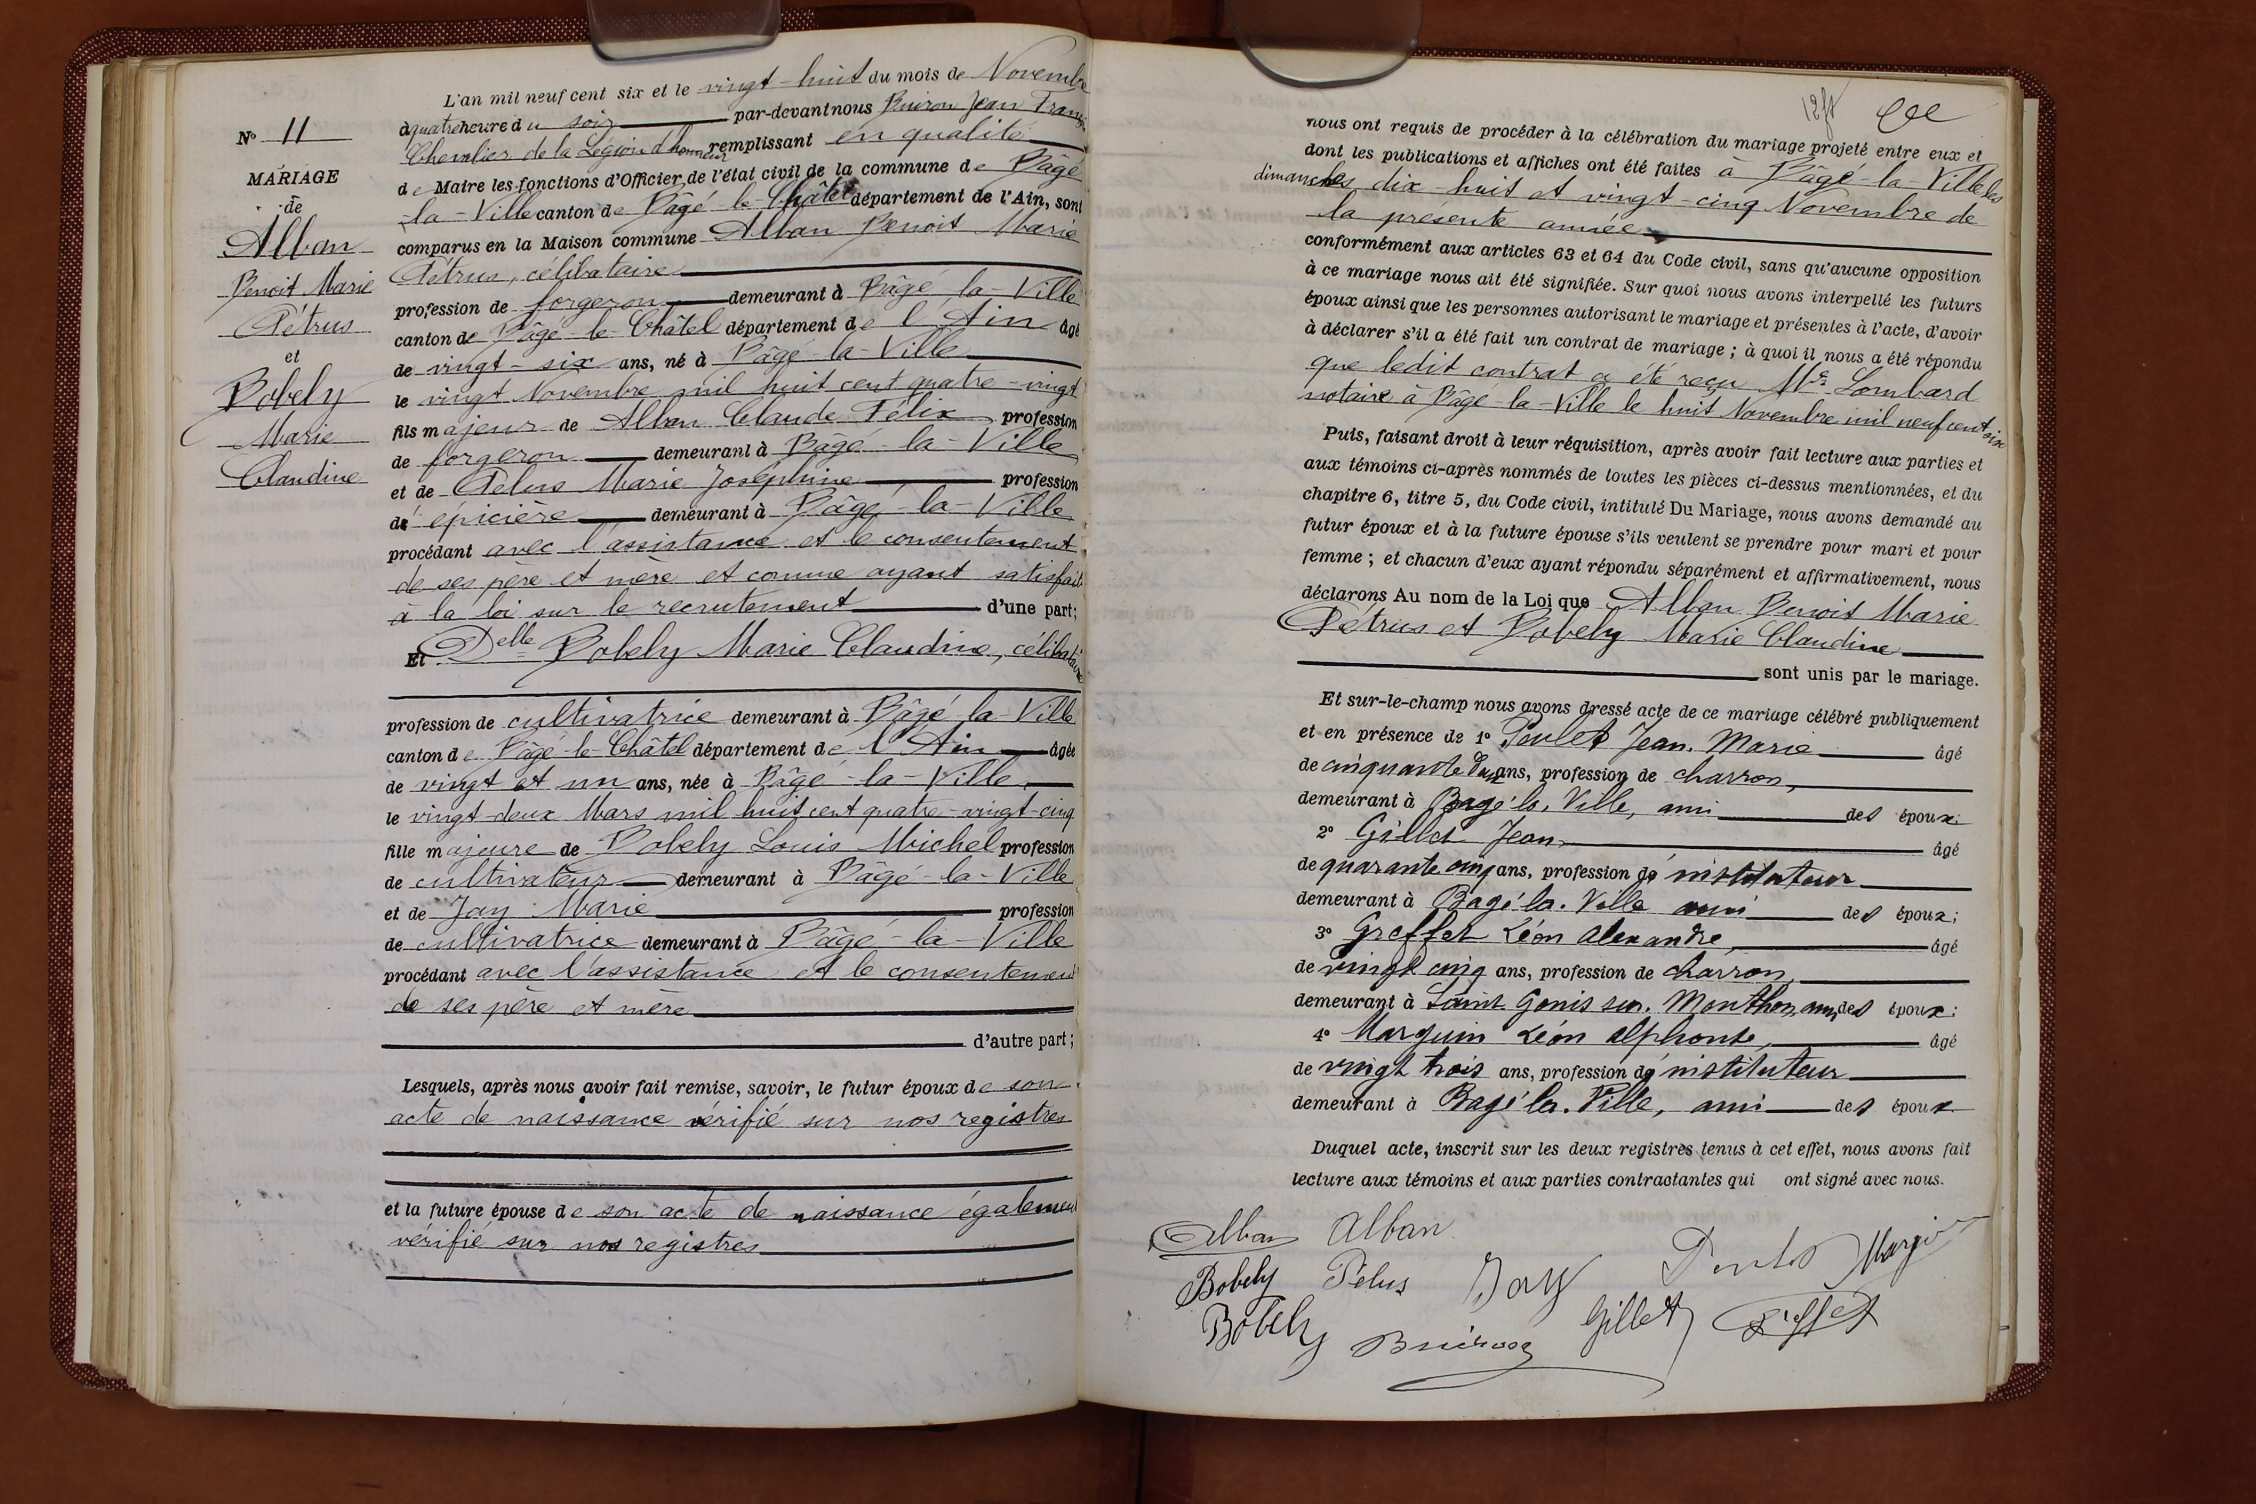 N° 11
MARIAGE
de
Alban
Benoit Marie
Pétrus
et
Bobely
Marie
Claudine
L'an mil neuf cent six et le vingt-huit du mois de Novembre
à quatre heure du soir par-devant nous Buiron Jean François
Chevalier de la Légion d'honneur remplissant en qualité
de Maire les fonctions d'Officier de l'état civil de la commune de Bâgé
-la-Ville canton de Bâgé-le-Châtel département de l'Ain, sont
comparus en la Maison commune Alban Benoit Marie
Pétrus, célibataire
profession de forgeron demeurant à Bâgé-la-Ville
canton de Bâgé-le-Châtel département de l'Ain âgé
de vingt-six ans, né à Bâgé-la-Ville
le vingt Novembre mil huit cent quatre-vingt
fils majeur de Alban Claude Félix profession
de forgeron demeurant à Bagé-la-Ville
et de Pelus Marie Joséphine profession
d'épicière demeurant à Bâgé-la-Ville
procédant avec l'assistance et le consentement
de ses père et mère et comme ayant satisfait
à la loi sur le recrutement d'une part;
Et Delle Bobely Marie Claudine, célibataire
profession de cultivatrice demeurant à Bâgé-la-Ville
canton de Bâgé-le-Châtel département de l'Ain âgée
de vingt et un ans, née à Bâgé-la-Ville
le vingt-deux Mars mil huit cent quatre-vingt-cinq
fille majeure de Bobely Louis Michel profession
de cultivateur demeurant à Bâgé-la-Ville
et de Jay Marie profession
de cultivatrice demeurant à Bâgé-la-Ville
procédant avec l'assistance et le consentement
de ses père et mère
d'autre part;
Lesquels, après nous avoir fait remise, savoir, le futur époux de son
acte de naissance vérifié sur nos registres
et la future épouse de son acte de naissance également
vérifié sur nos registres
nous ont requis de procéder à la célébration du mariage projeté entre eux et
dont les publications et affiches ont été faites à Bâgé-la-Ville les
dimanches dix-huit et vingt-cinq Novembre de
la présente année
conformément aux articles 63 et 64 du Code civil, sans qu'aucune opposition
à ce mariage nous ait été signifiée. Sur quoi nous avons interpellé les futurs
époux ainsi que les personnes autorisant le mariage et présentes à l'acte, d'avoir
à déclarer s'il a été fait un contrat de mariage; à quoi il nous a été répondu
que ledit contrat a été reçu Me Lombard
notaire à Bâgé-la-Ville le huit Novembre mil neuf cent six
Puis, faisant droit à leur réquisition, après avoir fait lecture aux parties et
aux témoins ci-après nommés de toutes les pièces ci-dessus mentionnées, et du
chapitre 6, titre 5, du Code civil, intitulé Du Mariage, nous avons demandé au
futur époux et à la future épouse s'ils veulent se prendre pour mari et pour
femme; et chacun d'eux ayant répondu séparément et affirmativement, nous
déclarons Au nom de la Loi que Alban Benoit Marie
Pétrus et Bobely Marie Claudine
sont unis par le mariage.
Et sur-le-champ nous avons dressé acte de ce mariage célébré publiquement
et en présence de 1° Poulet Jean. Marie âgé
de cinquante deux ans, profession de charron,
demeurant à Bagé la. Ville, ami des époux;
2° Gillet Jean, âgé
de quarante cinq ans, profession d'instituteur
demeurant à Bagé la. Ville ami des époux;
3° Greffet Léon Alexandre, âgé
de vingt cinq ans, profession de charron,
demeurant à Saint Genis sur. Menthon, ami des époux;
4° Marguin Léon Alphonse, âgé
de vingt trois ans, profession d'instituteur
demeurant à Bagé la. Ville, ami des époux
Duquel acte, inscrit sur les deux registres tenus à cet effet, nous avons fait
lecture aux témoins et aux parties contractantes qui ont signé avec nous.
Alban Alban
Bobely Pelus Jay Poulet Marguin
Bobely Buiron Gillet Greffet